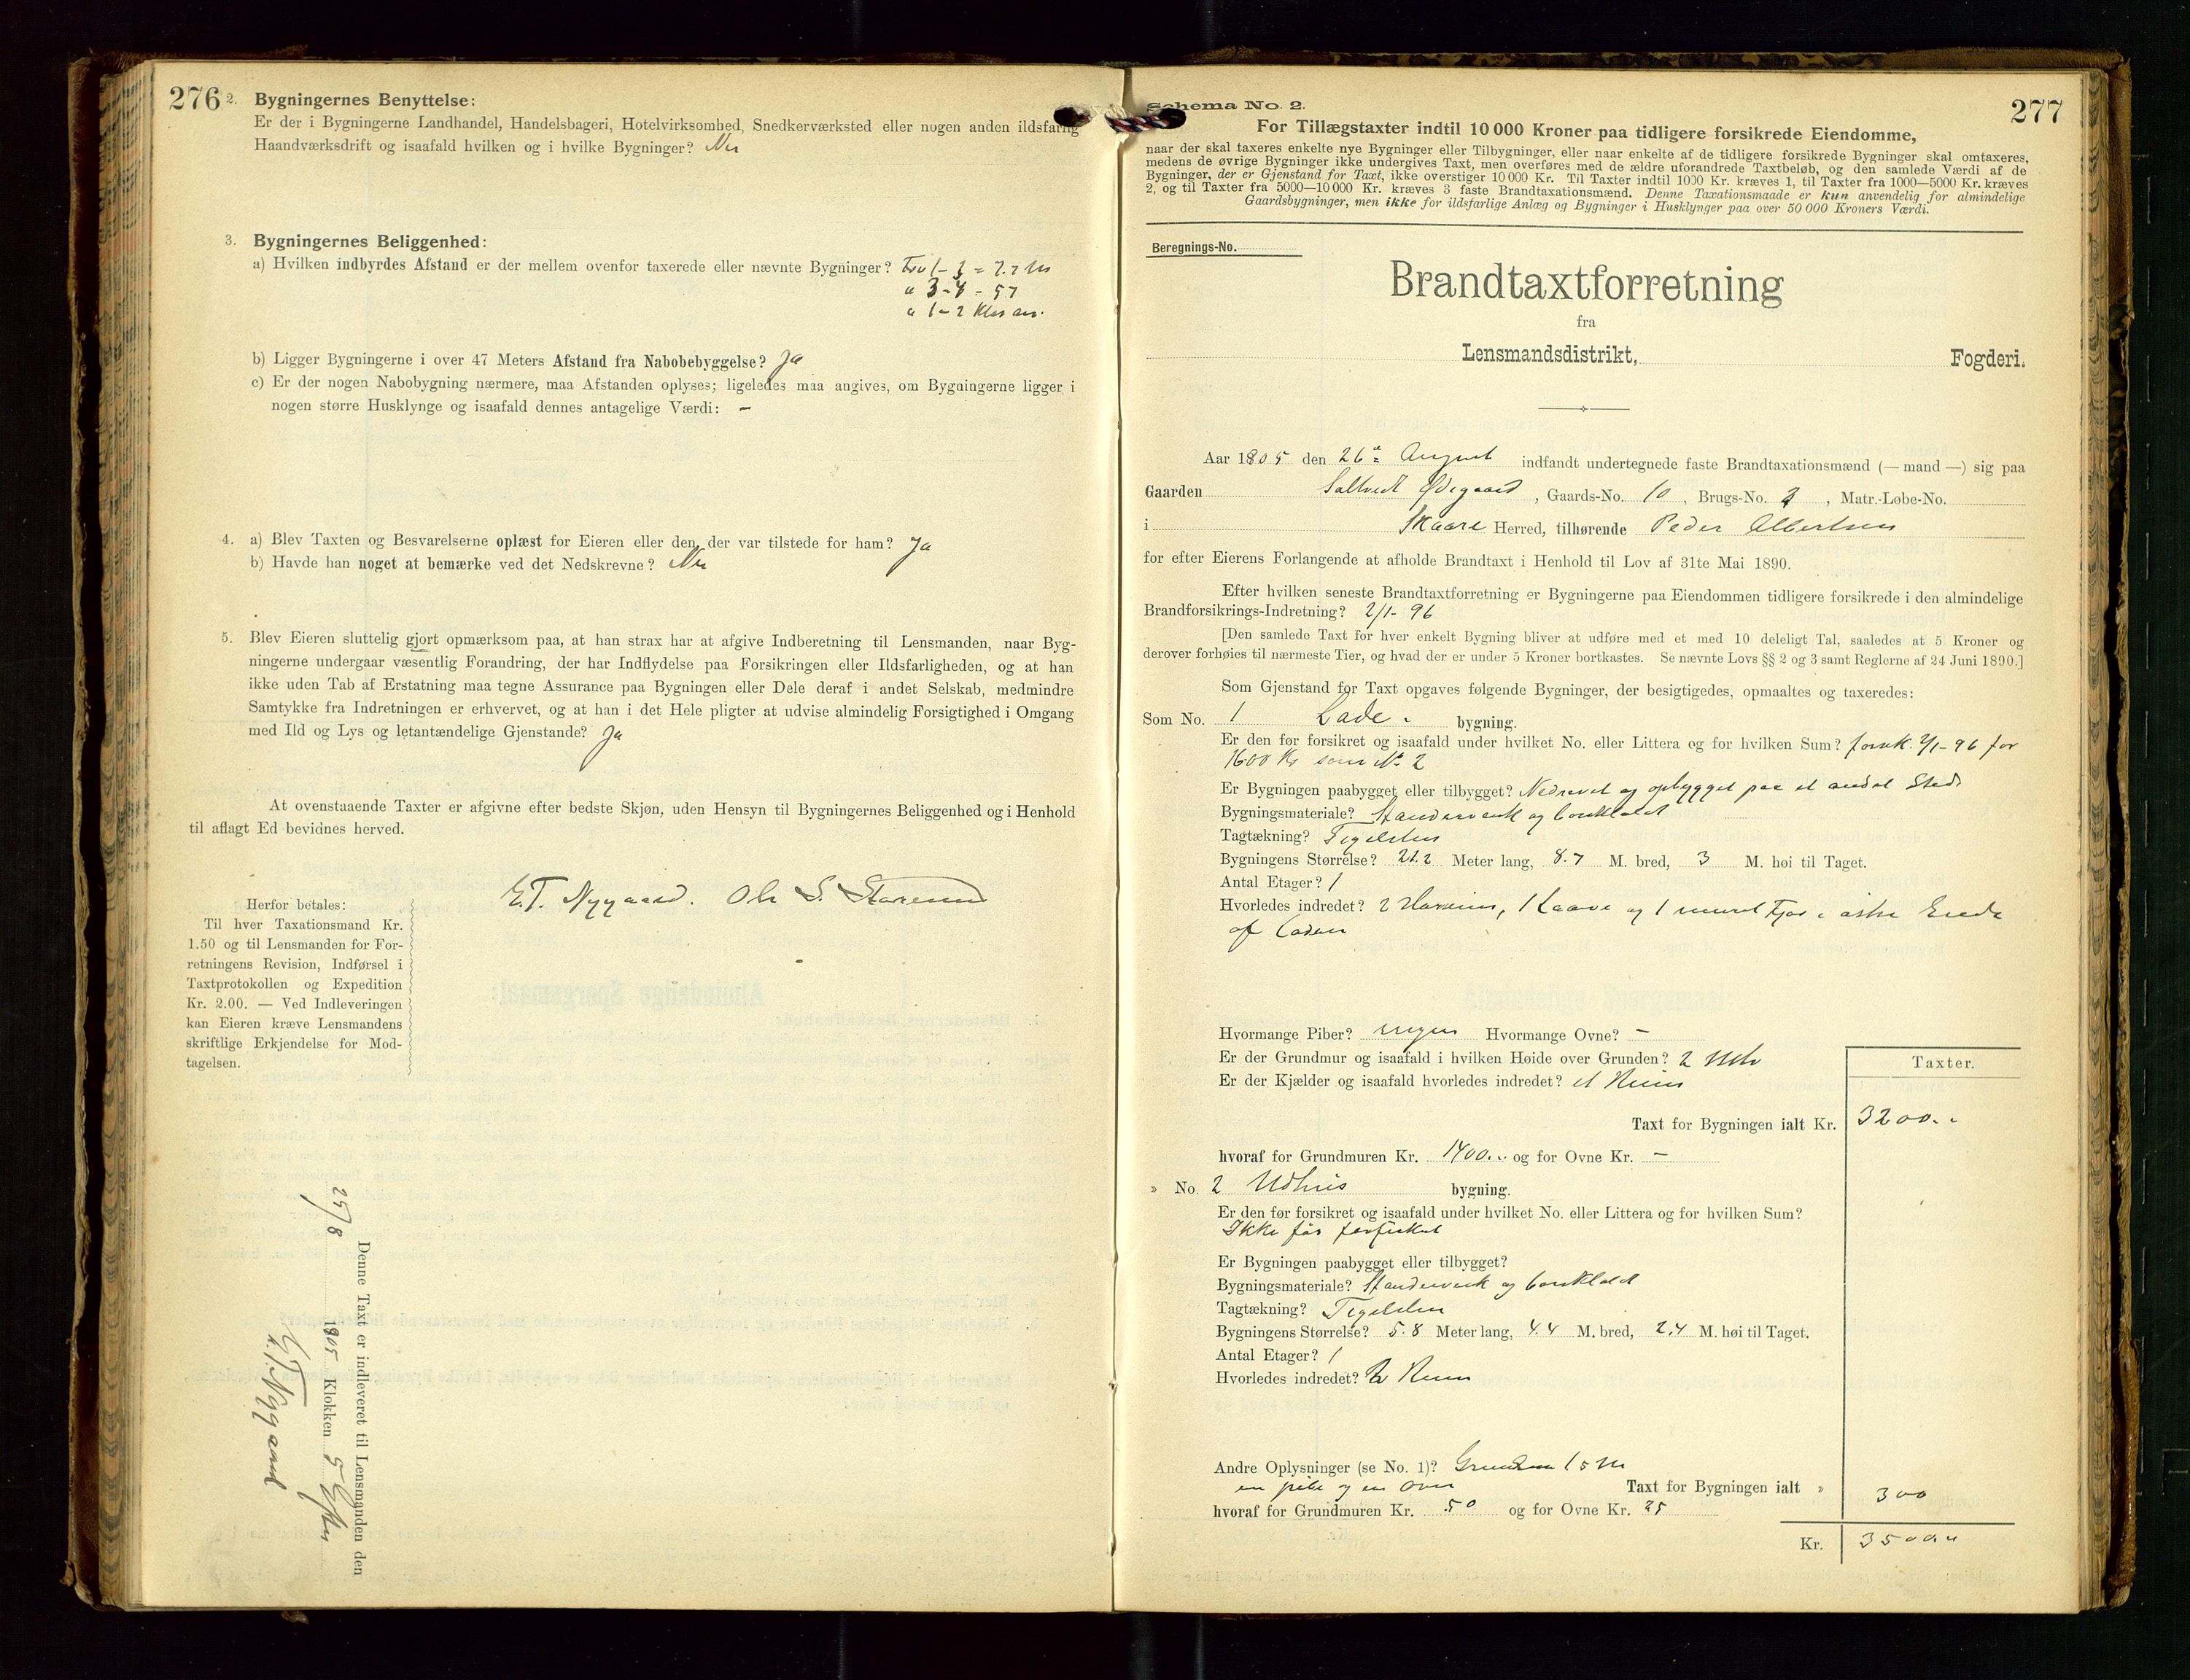 276
2. Bygningernes Benyttelse:
Er der i Bygningerne Landhandel, Handelsbageri, Hotelvirksomhed, Snedkerværksted eller nogen anden ildsfarlig
Haandværksdrift og isaafald hvilken og i hvilke Bygninger? Nei
3. Bygningernes Beliggenhed:
a) Hvilken indbyrdes Afstand er der mellem ovenfor taxerede eller nævnte Bygninger? Fra 1-3 = 7.7 M
" 3-4 - 57
" 1-2
b) Ligger Bygningerne i over 47 Meters Afstand fra Nabobebyggelse? Ja
c) Er der nogen Nabobygning nærmere, maa Afstanden oplyses; ligeledes maa angives, om Bygningerne ligger i
nogen større Husklynge og isaafald dennes antagelige Værdi: -
4. a) Blev Taxten og Besvarelserne oplæst for Eieren eller den, der var tilstede for ham? Ja
b) Havde han noget at bemærke ved det Nedskrevne? Nei
5. Blev Eieren sluttelig gjort opmærksom paa, at han strax har at afgive Indberetning til Lensmanden, naar Byg-
ningerne undergaar væsentlig Forandring, der har Indflydelse paa Forsikringen eller Ildsfarligheden, og at han
ikke uden Tab af Erstatning maa tegne Assurance paa Bygningen eller Dele deraf i andet Selskab, medmindre
Samtykke fra Indretningen er erhvervet, og at han i det Hele pligter at udvise almindelig Forsigtighed i Omgang
med Ild og Lys og letantændelige Gjenstande? Ja
At ovenstaaende Taxter er afgivne efter bedste Skjøn, uden Hensyn til Bygningernes Beliggenhed og i Henhold
til aflagt Ed bevidnes herved.
E.T. Nygaard. Ole S.
Herfor betales:
Til hver Taxationsmand Kr.
1.50 og til Lensmanden for For-
retningens Revision, Indførsel i
Taxtprotokollen og Expedition
Kr. 2.00. — Ved Indleveringen
kan Eieren kræve Lensmandens
skriftlige Erkjendelse for Mod-
tagelsen.
Denne Taxt er indleveret til Lensmanden den
25/8 1905 Klokken 5 Efter
E.T. Nygaard
277
Schema No. 2.
For Tillægstaxter indtil 10 000 Kroner paa tidligere forsikrede Eiendomme,
naar der skal taxeres enkelte nye Bygninger eller Tilbygninger, eller naar enkelte af de tidligere forsikrede Bygninger skal omtaxeres,
medens de øvrige Bygninger ikke undergives Taxt, men overføres med de ældre uforandrede Taxtbeløb, og den samlede Værdi af de
Bygninger, der er Gjenstand for Taxt, ikke overstiger 10 000 Kr. Til Taxter indtil 1000 Kr. kræves 1, til Taxter fra 1000—5000 Kr. kræves
2, og til Taxter fra 5000—10 000 Kr. kræves 3 faste Brandtaxationsmænd. Denne Taxationsmaade er kun anvendelig for almindelige
Gaardsbygninger, men ikke for ildsfarlige Anlæg og Bygninger i Husklynger paa over 50 000 Kroners Værdi.
Beregnings-No.
Brandtaxtforretning
fra
Lensmandsdistrikt, Fogderi.
Aar 1905 den 26de August indfandt undertegnede faste Brandtaxationsmænd (— mand —) sig paa
Gaarden Saltvedt Ødegaard, Gaards-No. 10, Brugs-No. 2, Matr.-Løbe-No.
i Skaare Herred, tilhørende Peder Albertsen
for efter Eierens Forlangende at afholde Brandtaxt i Henhold til Lov af 31te Mai 1890.
Efter hvilken seneste Brandtaxtforretning er Bygningerne paa Eiendommen tidligere forsikrede i den almindelige
Brandforsikrings-Indretning? 2/1-96
[Den samlede Taxt for hver enkelt Bygning bliver at udføre med et med 10 deleligt Tal, saaledes at 5 Kroner og
derover forhøies til nærmeste Tier, og hvad der er under 5 Kroner bortkastes. Se nævnte Lovs §§ 2 og 3 samt Reglerne af 24 Juni 1890.]
Som Gjenstand for Taxt opgaves følgende Bygninger, der besigtigedes, opmaaltes og taxeredes:
Som No. 1 Lade - bygning.
Er den før forsikret og isaafald under hvilket No. eller Littera og for hvilken Sum? forsik. 2/1-96 for
1600 Kr som No 2
Er Bygningen paabygget eller tilbygget? Nedrevet og opbygget paa et andet Sted
Bygningsmateriale? Standerverk og bordklædt
Tagtækning? Tegelsten
Bygningens Størrelse? 21.2 Meter lang, 8.7 M. bred, 3 M. høi til Taget.
Antal Etager? 1
Hvorledes indredet? 2 1 Laave og 1 muret Fjøs i østre Ende
af Laden
Hvormange Piber? ingen Hvormange Ovne? -
Er der Grundmur og isaafald i hvilken Høide over Grunden? 2 Mtr
Er der Kjælder og isaafald hvorledes indredet? et Rum
Taxter.
Taxt for Bygningen ialt Kr. 3200.-
hvoraf for Grundmuren Kr. 1400.- og for Ovne Kr. -
» No. 2 Udhus bygning.
Er den før forsikret og isaafald under hvilket No. eller Littera og for hvilken Sum?
Ikke før forsikret
Er Bygningen paabygget eller tilbygget?
Bygningsmateriale? Standerverk og bordklædt
Tagtækning? Tegelsten
Bygningens Størrelse? 5.8 Meter lang, 4.4 M. bred, 2.4 M. høi til Taget.
Antal Etager? 1
Hvorledes indredet? 2 Rum
Andre Oplysninger (se No. 1)? 1 5 M
en pibe og en Ovn Taxt for Bygningen ialt » 300
hvoraf for Grundmuren Kr. 50 og for Ovne Kr. 25
Kr. 3500.-